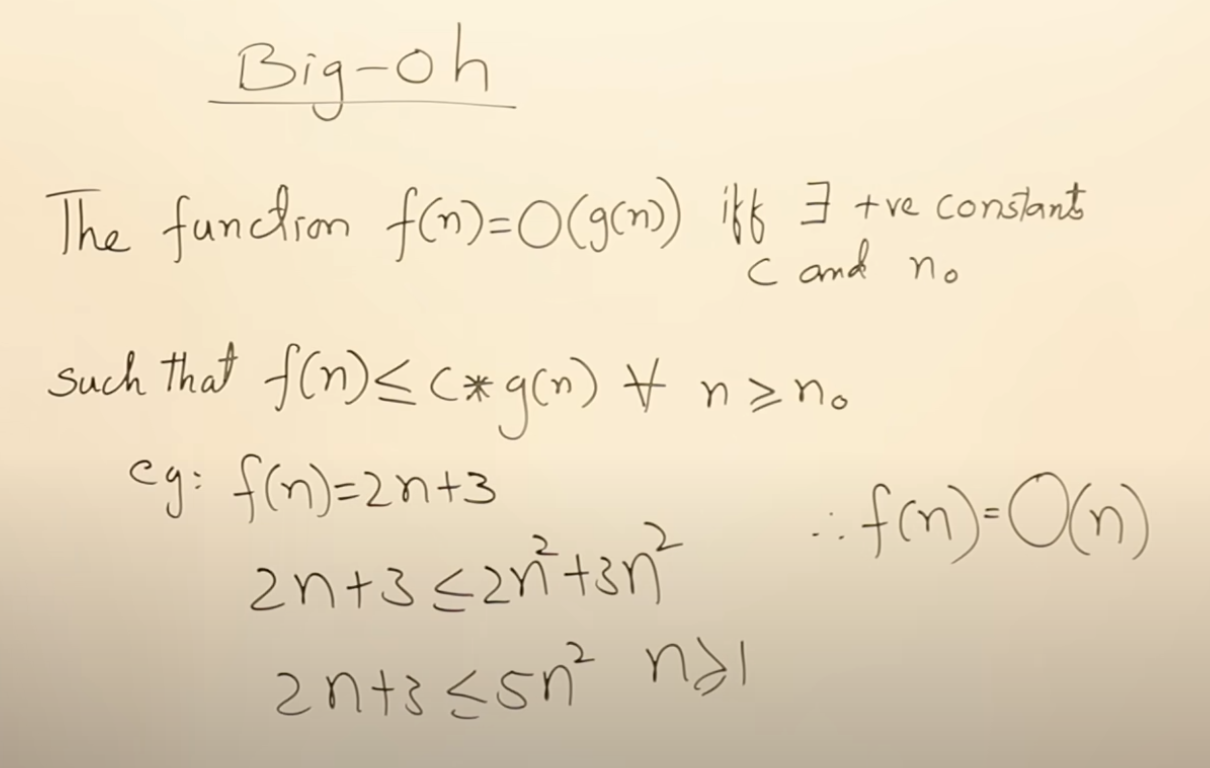 Big-oh
The function f(n)=O(g(n)) iff ∃ +ve constant
c and n₀
such that f(n)≤ c*g(n) ∀ n≥n₀
eg: f(n)=2n+3
∴ f(n)=O(n)
2n+3≤2n²+3n²
2n+3≤5n² n≥1